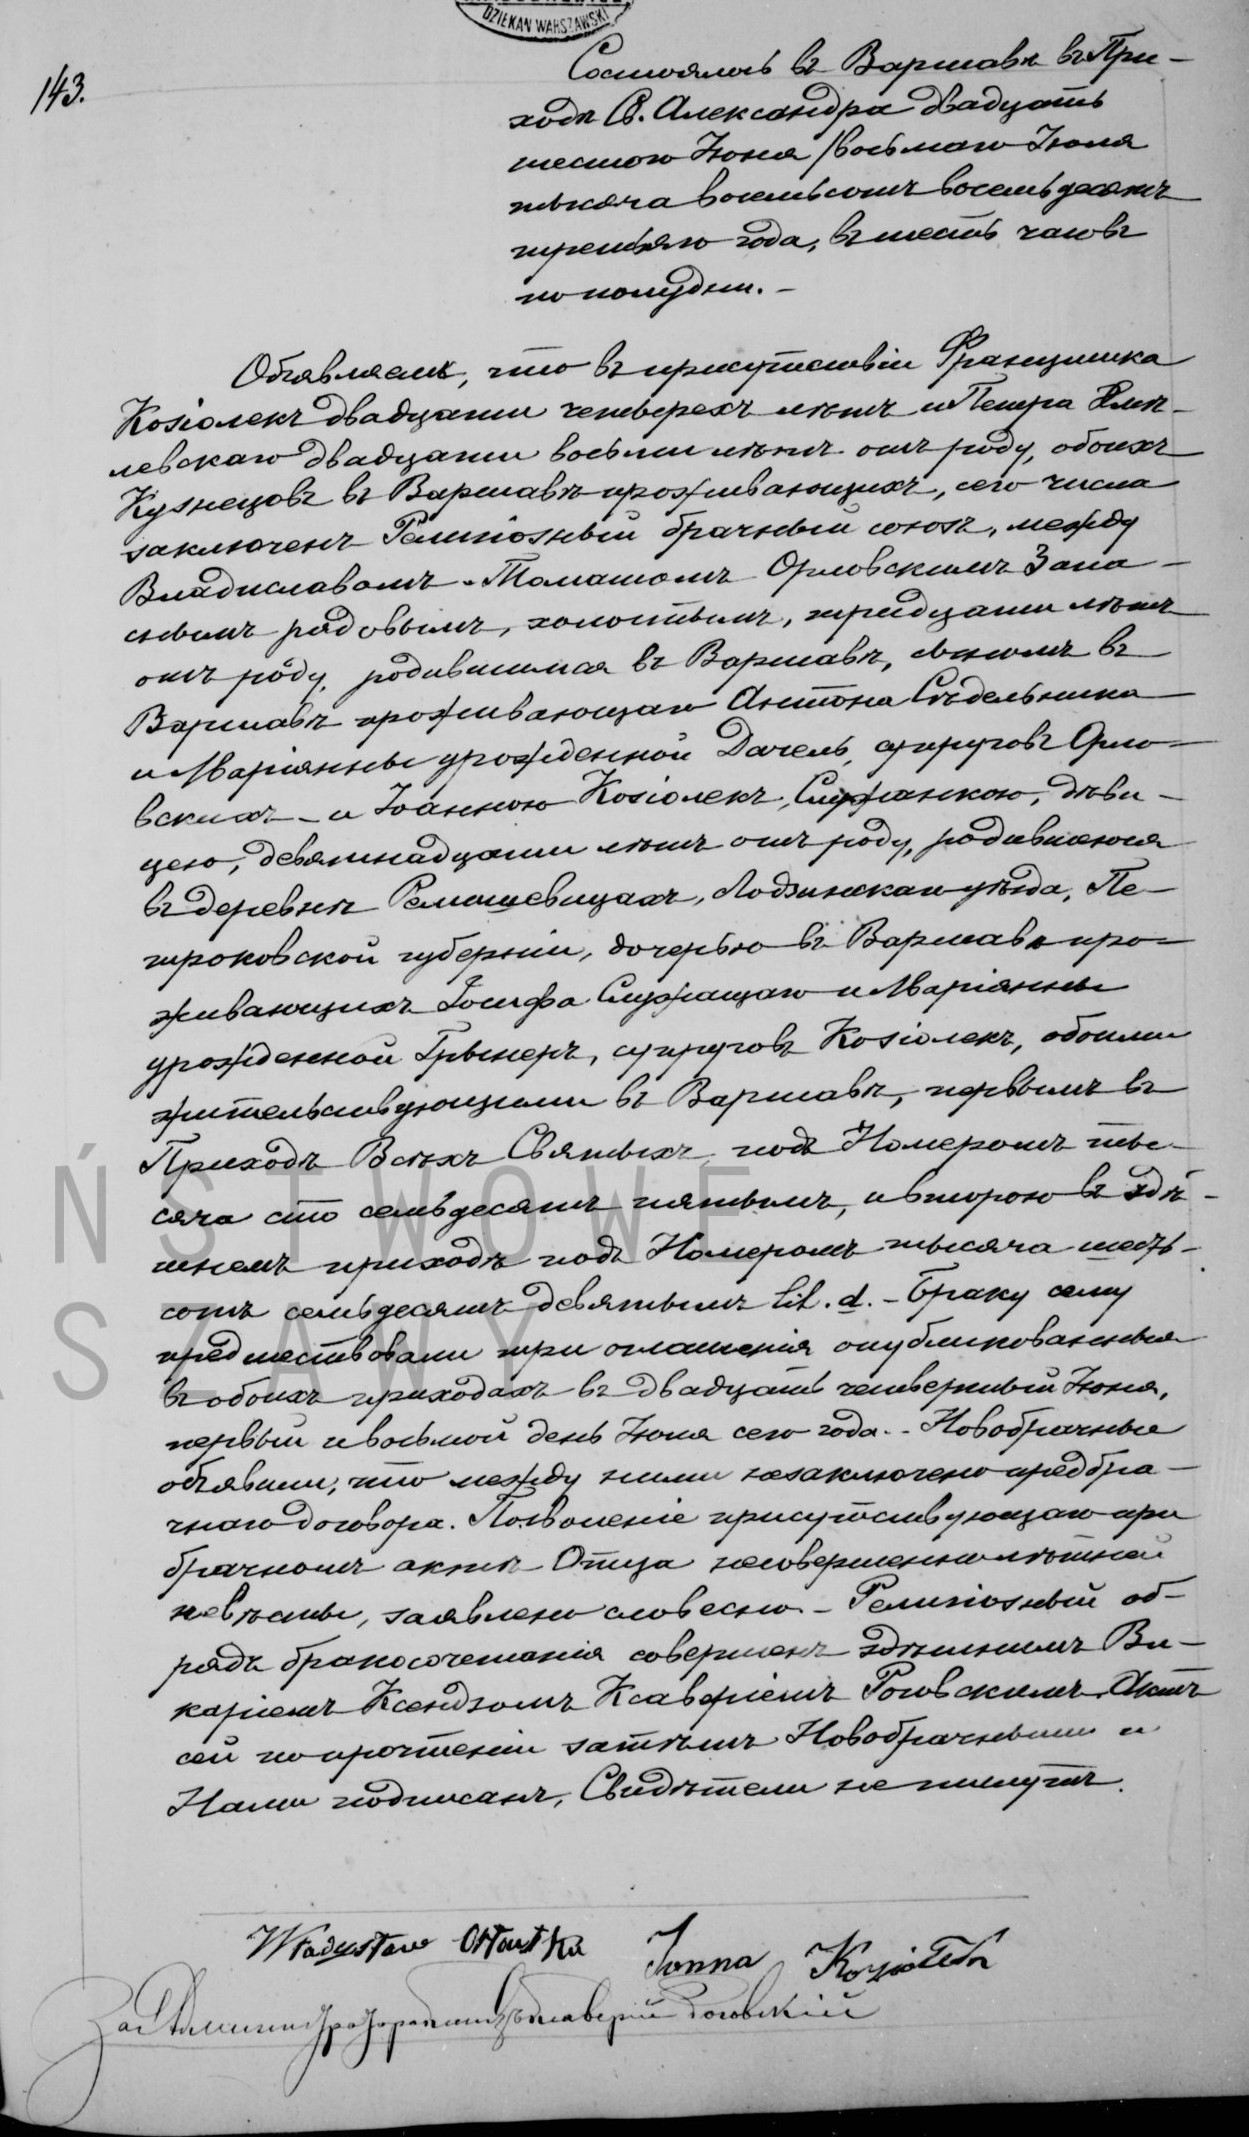 DZIEKAN WARSZAWSKI
143.
Состоялось въ Варшавѣ въ При-
ходѣ Св. Александра двадцать
шестого Іюня /восьмаго Іюля
тысяча восемьсотъ восемьдесятъ
третьяго года, въ шесть часовъ
по полудни. -
Объявляемъ, что въ присутствіи Францишка
Козіолекъ двадцати четырехъ лѣтъ и Петра
левскаго двадцати восьми лѣтъ отъ роду, обоихъ
Кузнецовъ въ Варшавѣ проживающихъ, сего числа
заключенъ Религіозный брачный союзъ, между
Владиславомъ-Томашомъ Орловскимъ Запа-
снымъ рядовымъ, холостымъ, тридцати лѣтъ
отъ роду, родившимся въ Варшавѣ, сыномъ въ
Варшавѣ проживающаго Антона Сѣдельника
и Маріянны урожденной Дачель, супруговъ Орло-
вскихъ - и Іоанною Козіолекъ, Служанкою, дѣви-
цею, девятнадцати лѣтъ отъ роду, родившеюся
въ деревнѣ Ремишевицахъ, Лодзинскаго уѣзда, Пе-
троковской губерніи, дочерью въ Варшавѣ про-
живающихъ Іосифа Служащаго и Маріянны
урожденной Грынеръ, супруговъ Козіолекъ, обоими
жительствующими въ Варшавѣ, первымъ въ
Приходѣ Всѣхъ Святыхъ подъ Номеромъ ты-
сяча сто семьдесятъ пятымъ, и второю въ здѣ-
шнемъ приходѣ подъ Номеромъ тысяча шесть-
сотъ семьдесятъ девятымъ lit. d. - Браку сему
предшествовали три оглашенія опубликованныя
въ обоихъ приходахъ въ двадцать четвертый Іюня,
первый и восьмой день Іюля сего года. - Новобрачные
объявили, что между ними незаключено предбра-
чнаго договора. Позволеніе присутствующаго при
брачномъ актѣ Отца несовершеннолѣтней
невѣсты, заявлено словесно - Религіозный об-
рядъ бракосочетанія совершенъ здѣшнимъ Ви-
каріемъ Ксендзомъ Ксаверіемъ Роговскимъ. Актъ
сей по прочтеніи затѣмъ Новобрачными и
Нами подписанъ, Свидѣтели не пишутъ.
Władysław
Joanna Koziołek
За Администратора Ксаверій Роговскій
ŃSTWOWE
SZAWY